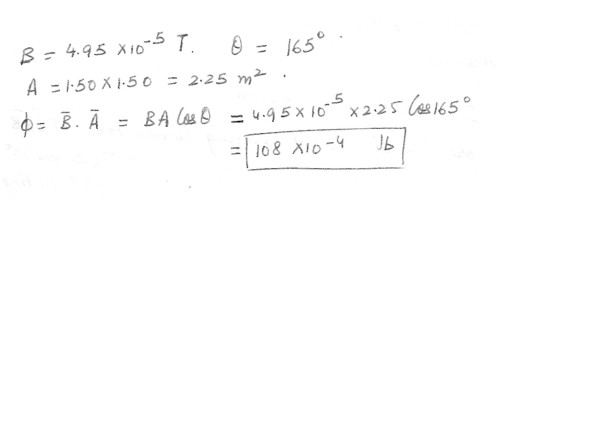 B = 4.95 ×10⁻⁵ T. θ = 165° .
A = 1.50 × 1.50 = 2.25 m² .
ϕ = B̄ . Ā = BA Cosθ = 4.95 × 10⁻⁵ × 2.25 Cos165°
= 108 ×10⁻⁴